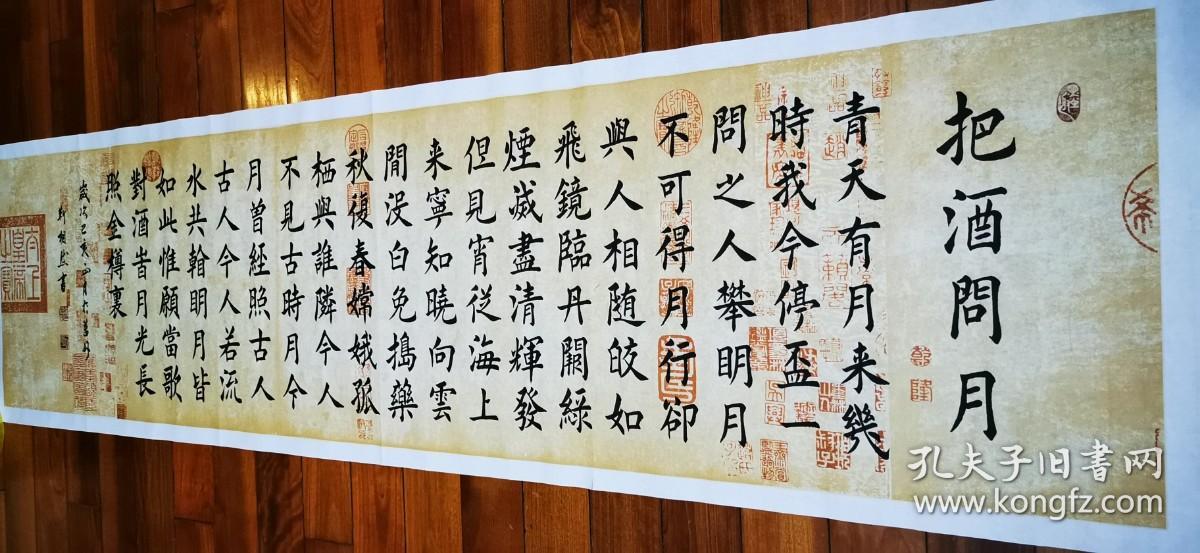 把酒問月
青天有月来幾
時我今停盃一
問之人攀明月
不可得月行卻
與人相随皎如
飛鏡臨丹闕綠
煙滅盡清輝發
但見宵從海上
来寧知曉向雲
閒没白兔搗藥
秋復春嫦娥孤
栖與誰隣今人
不見古時月今
月曾經照古人
古人今人若流
水共看明月皆
如此惟願當歌
對酒時月光長
照金樽裏
孔夫子旧書网
www.kongfz.com